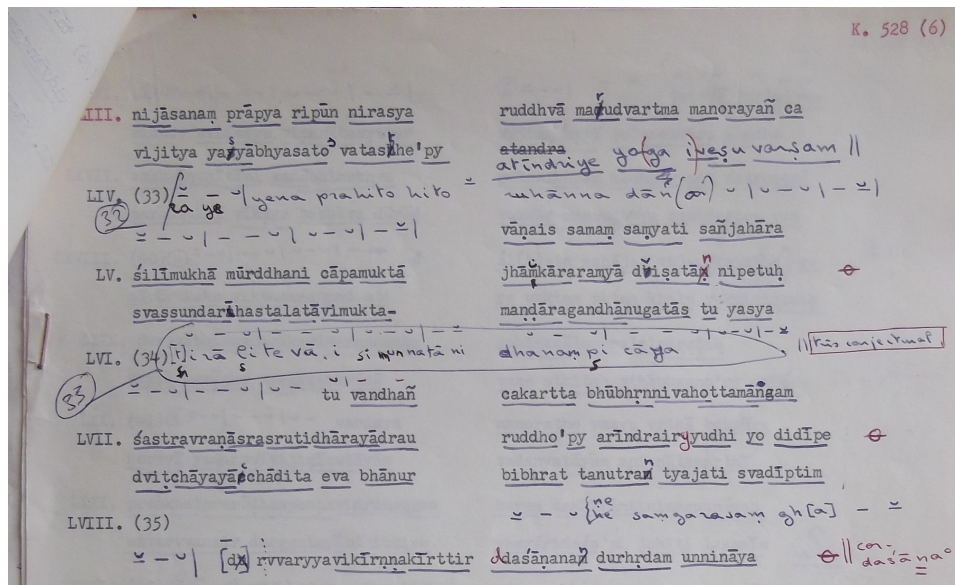 K. 528 (6)
LIII. nijāsanaṃ prāpya ripūn nirasya ruddhvā marudvartma manorayañ ca
vijitya yasyābhyasato vatasthe'py atandra atīndriye varṣam ||
LIV. (33) yena prahito hito
32
vāṇais samaṃ saṃyati sañjahāra
LV. śilīmukhā mūrddhani cāpamuktā jhāṃkāraramyā dviṣatān nipetuḥ
svassundarīhastalatāvimukta- mandāragandhānugatās tu yasya
LVI. (34) munnatāni dhanam pi cāya || this conjectural
33
tu vandhañ cakartta bhūbhṛnnivahottamāṅgam
LVII. śastravraṇāsrasrutidhārayādrau ruddho'py arīndrair yudhi yo didīpe
dviṭchāyayācchādita eva bhānur bibhrat tanutran tyajati svadīptim
LVIII. (35) ne ne samgarasaṃ gh[a]
rvvaryyavikīrṇṇakīrttir daśāṇanaṃ durhṛdam unnināya || cor. daśānana°